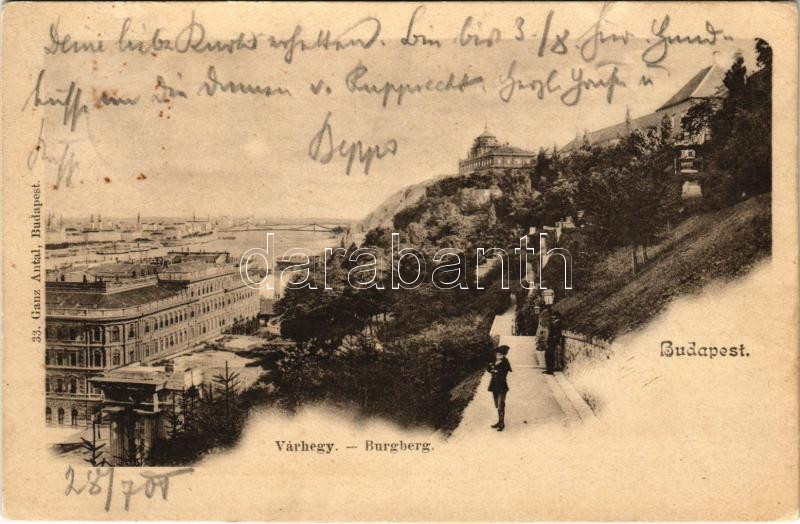 Deine liebe Karte erhalten. Bin bis 3./8. hier Hand-
küsse an die Damen v. Rupprecht. Herzl. Grüße u
Beppo
33. Ganz Antal, Budapest.
darabanth
Budapest.
Várhegy. — Burgberg.
28/700